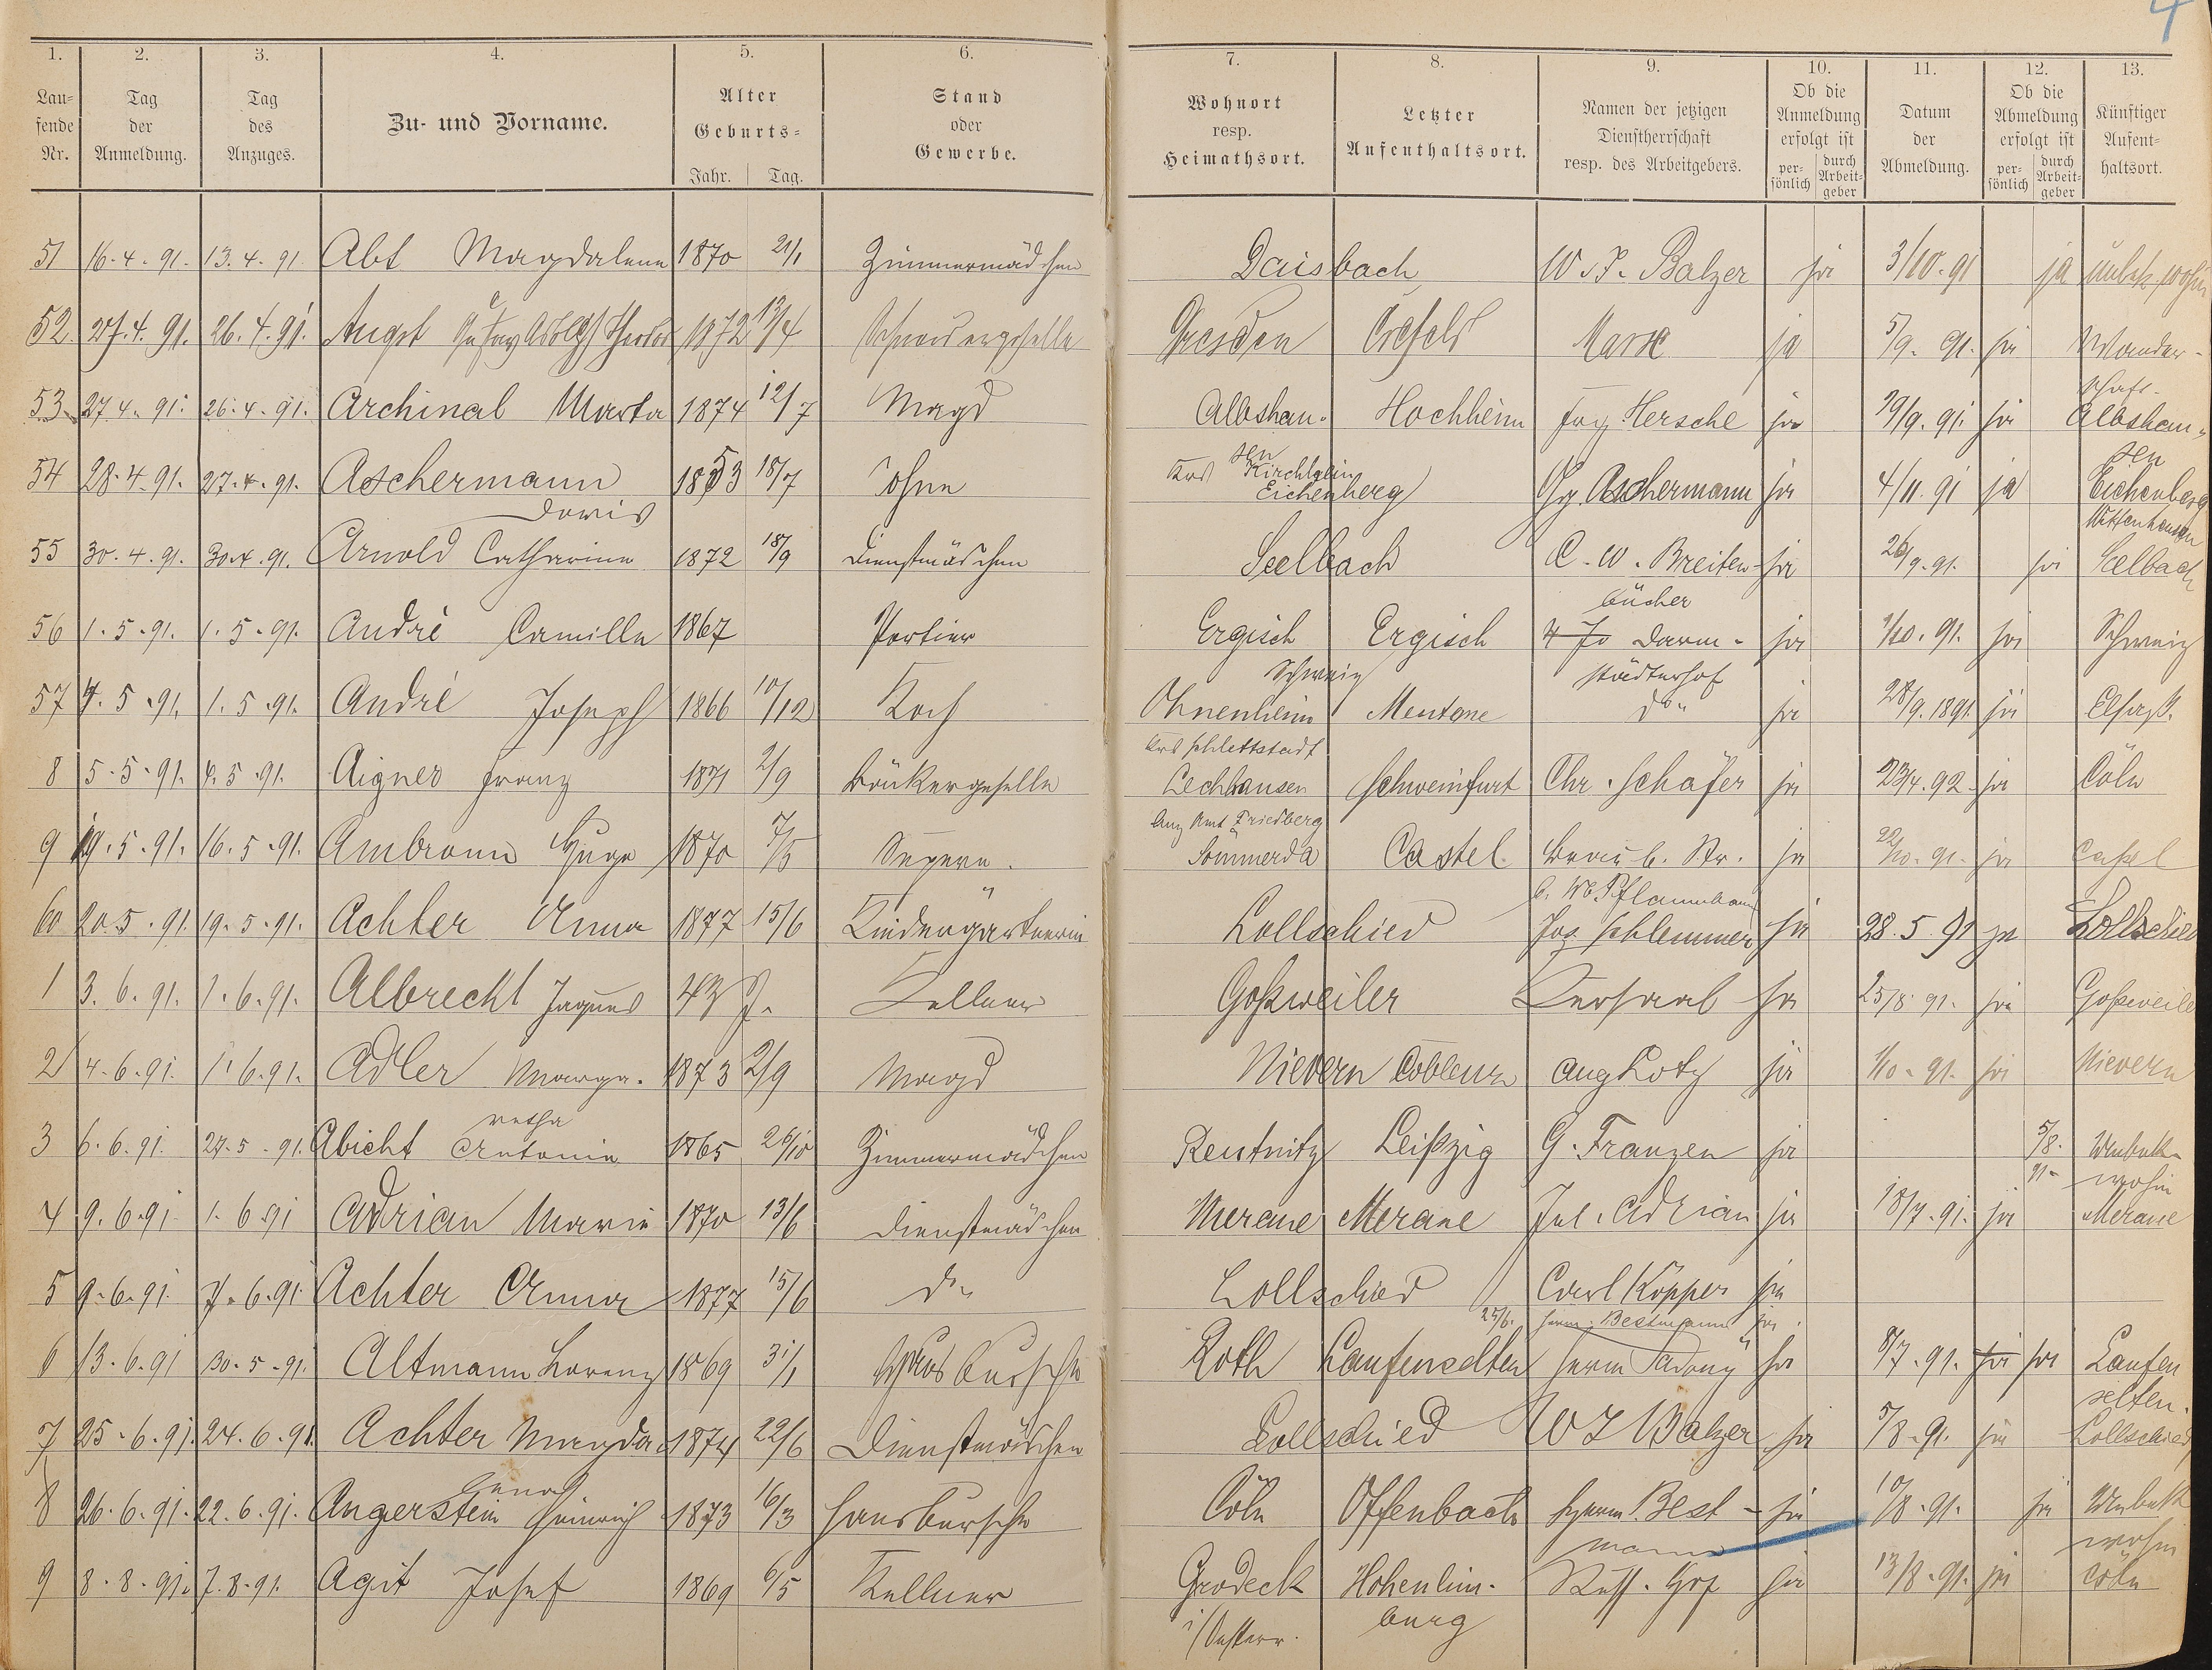 4
1. 2. 3. 4. 5. 6. 7. 8. 9. 10. 11. 12. 13.
Lau= fende Nr. Tag der Anmeldung. Tag des Anzuges. Zu- und Vorname. Alter Geburts= Jahr. Tag. Stand oder Gewerbe. Wohnort resp. Heimathsort. Letzter Aufenthaltsort. Namen der jetzigen Dienstherrschaft resp. des Arbeitgebers. Ob die Anmeldung erfolgt ist per= sönlich durch Arbeit= geber Datum der Abmeldung. Ob die Abmeldung erfolgt ist per= sönlich durch Arbeit= geber Künftiger Aufent= haltsort.
51 16.4.91. 13.4.91 Abt Magdalene 1870 21/1 Zimmermädchen Daisbach W. F. Balzer ja 3/10.91 ja unbek. wohin
52. 27.4.91. 26.4.91. Angst Theodor 1872 12/4 Schneidergeselle Dresden Crefeld Marx ja 5/9. 91. ja Wander-
schaft-
53. 27.4.91. 26.4.91. Archinal Marta 1874 12/7 Magd Albshau- Hochheim Hersche ja 19/9.91. ja Albshau-
sen sen
54 28.4.91. 27.4.91. Aschermann 1853 18/7 ohne Eichenberg Gg. Aschermann ja 4/11.91 ja Eichenberg
Doris Witzenhausen
55 30.4.91. 30.4.91. Arnold Catharina 1872 18/9 Dienstmädchen Seelbach C. W. Breiten- ja 26/9.91. ja Seelbach
bücher
56 1.5.91. 1.5.91. André Camille 1867 Portier Ergisch Ergisch Darm- ja 1/10.91. ja Schweiz
Schweiz städterhof
57 4.5.91. 1.5.91. André Joseph 1866 10/12 Koch Ohnenheim Mentone do ja 28/9.1891. ja Elsaß.
Krs Schlettstadt
8 5.5.91. 4.5.91. Aigner Franz 1871 2/9 Bäckergeselle Lechhausen Schweinfurt Chr. Schäfer ja 23/4.92 ja Cöln
Amt Friedberg
9 19.5.91. 16.5.91. Ambronn Hugo 1870 7/5 Sömmerda Castel ja 22/10.91. ja Cassel
b. Wb Pflaumbaum
60 20.5.91. 19.5.91. Achter Anna 1877 15/6 Kindergärtnerin Lollschied Jos. Schlemmer ja 28.5.91 ja Lollschied
1 3.6.91. 1.6.91. Albrecht Jaques 43 J. Kellner Goßweiler Kursaal ja 25/8.91. ja Goßweiler
2 4.6.91. 1.6.91. Adler Marga- 1873 2/9 Magd Nievern Coblenz Aug Lotz ja 1/10.91. ja Nievern
retha
3 6.6.91. 27.5.91. Abicht Antonie 1865 26/10 Zimmermädchen Reutnitz Leipzig G. Franzen ja 5/8. Unbek.
91- wohin
4 9.6.91 1.6.91 Adrian Marie 1870 13/6 Dienstmädchen Merane Merane Jul. Adrian ja 18/7.91. ja Merane
5 9.6.91. 7.6.91. Achter Anna 1877 15/6 do Lollschied Carl Köpper ja
25/6. Herm. Bestmann ja
6 13.6.91 30.5.91. Altmann Lorenz 1869 31/1 Hausbursche Roth Laufenselten Herm ja 8/7.91. ja ja Laufen
selten.
7 25.6.91. 24.6.91. Achter Magda- 1874 22/6 Dienstmädchen Lollschied W F Balzer ja 5/8.91. ja Lollschied
lena
8 26.6.91. 22.6.91. Angerstein Heinrich 1873 16/3 Hausbursche Cöln Offenbach Herm. Best- ja 10/8.91. ja Unbek
mann wohin
9 8.8.91. 7.8.91. Agit Josef 1869 6/5 Kellner Grodeck Hohenlim- Russ. Hof ja 13/8.91. ja Cöln
i/Oesterr. burg